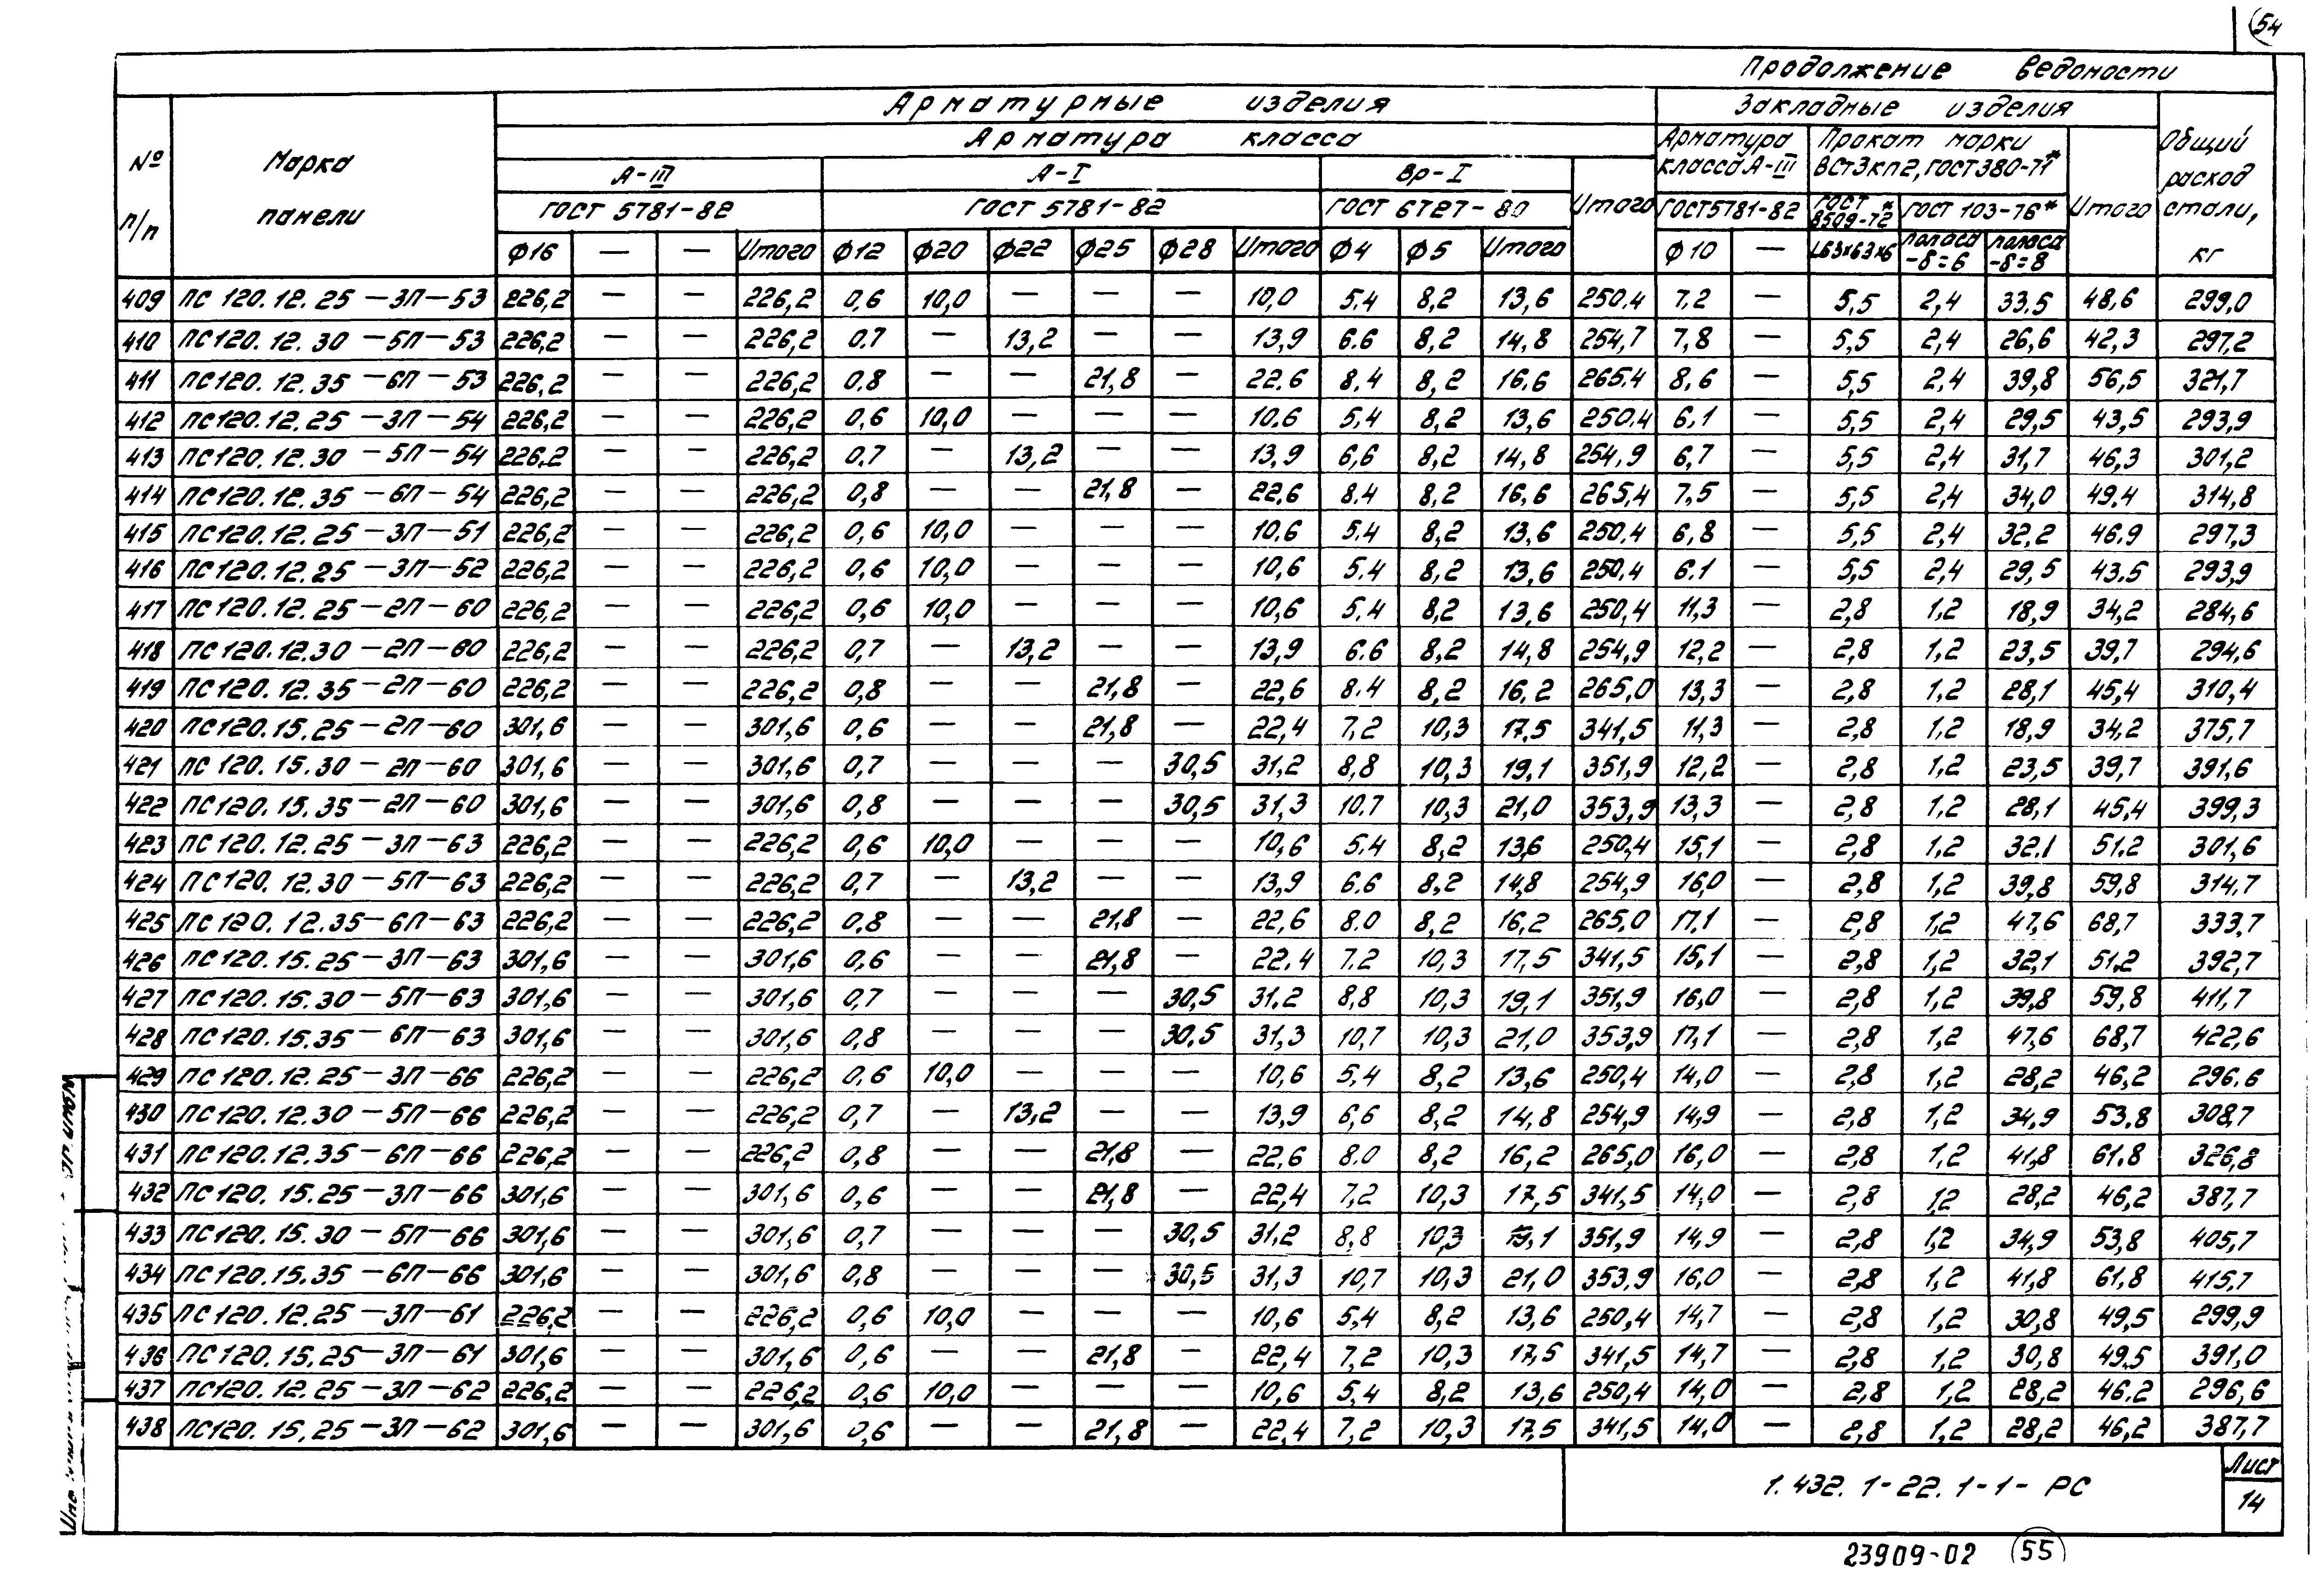 54
Продолжение ведомости
№ п/п
Марка панели
Арматурные изделия
Закладные изделия
Общий расход стали, кг
Арматура класса
Арматура класса А-III
Прокат марки ВСт3кп2, ГОСТ 380-71*
А-III
А-I
Вр-I
Итого
Итого
ГОСТ 5781-82
ГОСТ 5781-82
ГОСТ 6727-80
ГОСТ 5781-82
ГОСТ 8509-72*
ГОСТ 103-76*
Ф16 — — Итого Ф12 Ф20 Ф22 Ф25 Ф28 Итого Ф4 Ф5 Итого Ф10 — L63х63х6 полоса -δ=6 полоса -δ=8
409 ПС 120.12.25-3П-53 226,2 — — 226,2 0,6 10,0 — — — 10,0 5.4 8,2 13,6 250.4 7.2 — 5,5 2,4 33.5 48,6 299,0
410 ПС120.12.30-5П-53 226,2 — — 226,2 0.7 — 13,2 — — 13,9 6.6 8,2 14,8 254,7 7,8 — 5,5 2,4 26,6 42,3 297,2
411 ПС120.12.35-6П-53 226,2 — — 226,2 0.8 — — 21,8 — 22.6 8.4 8,2 16,6 265.4 8,6 — 5,5 2,4 39,8 56,5 321,7
412 ПС120.12.25-3П-54 226,2 — — 226,2 0,6 10,0 — — — 10.6 5.4 8,2 13,6 250.4 6,1 — 5,5 2,4 29,5 43,5 293,9
413 ПС120.12.30-5П-54 226,2 — — 226,2 0.7 — 13,2 — — 13,9 6,6 8,2 14,8 254,9 6,7 — 5,5 2,4 31,7 46,3 301,2
414 ПС120.12.35-6П-54 226,2 — — 226,2 0,8 — — 21,8 — 22,6 8.4 8,2 16,6 265,4 7,5 — 5,5 2,4 34,0 49.4 314,8
415 ПС120.12.25-3П-51 226,2 — — 226,2 0,6 10,0 — — — 10.6 5.4 8,2 13,6 250,4 6,8 — 5,5 2,4 32,2 46.9 297,3
416 ПС120.12.25-3П-52 226,2 — — 226,2 0,6 10,0 — — — 10,6 5.4 8,2 13,6 250,4 6.1 — 5,5 2,4 29,5 43.5 293,9
417 ПС120.12.25-2П-60 226,2 — — 226,2 0,6 10,0 — — — 10,6 5.4 8,2 13,6 250,4 11,3 — 2,8 1,2 18,9 34,2 284,6
418 ПС120.12.30-2П-60 226,2 — — 226,2 0,7 — 13,2 — — 13,9 6.6 8,2 14,8 254,9 12,2 — 2,8 1,2 23,5 39,7 294,6
419 ПС120.12.35-2П-60 226,2 — — 226,2 0,8 — — 21,8 — 22,6 8.4 8,2 16,2 265,0 13,3 — 2,8 1,2 28,1 45,4 310,4
420 ПС120.15.25-2П-60 301,6 — — 301,6 0,6 — — 21,8 — 22,4 7,2 10,3 17,5 341,5 11,3 — 2,8 1,2 18,9 34,2 375,7
421 ПС 120.15.30-2П-60 301,6 — — 301,6 0,7 — — — 30,5 31,2 8,8 10,3 19,1 351,9 12,2 — 2,8 1,2 23,5 39,7 391,6
422 ПС120.15.35-2П-60 301,6 — — 301,6 0,8 — — — 30,5 31,3 10.7 10,3 21,0 353,9 13,3 — 2,8 1,2 28,1 45,4 399,3
423 ПС 120.12.25-3П-63 226,2 — — 226,2 0,6 10,0 — — — 10,6 5.4 8,2 13,6 250,4 15,1 — 2,8 1,2 32.1 51.2 301,6
424 ПС120.12.30-5П-63 226,2 — — 226,2 0,7 — 13,2 — — 13,9 6.6 8,2 14,8 254,9 16,0 — 2,8 1,2 39,8 59,8 314,7
425 ПС120.12.35-6П-63 226,2 — — 226,2 0,8 — — 21,8 — 22,6 8.0 8,2 16,2 265,0 17,1 — 2,8 1,2 47,6 68,7 333,7
426 ПС120.15.25-3П-63 301,6 — — 301,6 0,6 — — 21,8 — 22,4 7.2 10,3 17,5 341,5 15,1 — 2,8 1,2 32,1 51,2 392,7
427 ПС120.15.30-5П-63 301,6 — — 301,6 0,7 — — — 30,5 31.2 8,8 10,3 19,1 351,9 16,0 — 2,8 1,2 39,8 59,8 411,7
428 ПС120.15.35-6П-63 301,6 — — 301,6 0,8 — — — 30,5 31,3 10,7 10,3 21,0 353,9 17,1 — 2,8 1,2 47,6 68,7 422,6
429 ПС120.12.25-3П-66 226,2 — — 226,2 0,6 10,0 — — — 10,6 5,4 8,2 13,6 250,4 14,0 — 2,8 1,2 28,2 46,2 296.6
430 ПС120.12.30-5П-66 226,2 — — 226,2 0,7 — 13,2 — — 13,9 6,6 8,2 14,8 254,9 14,9 — 2,8 1,2 34,9 53,8 308,7
431 ПС120.12.35-6П-66 226,2 — — 226,2 0,8 — — 21,8 — 22,6 8.0 8,2 16,2 265,0 16,0 — 2,8 1,2 41,8 61.8 326,8
432 ПС120.15.25-3П-66 301,6 — — 301,6 0,6 — — 21,8 — 22,4 7,2 10,3 17,5 341,5 14,0 — 2,8 1,2 28,2 46,2 387,7
433 ПС120.15.30-5П-66 301,6 — — 301,6 0,7 — — — 30,5 31,2 8,8 10,3 19,1 351,9 14,9 — 2,8 1,2 34,9 53,8 405,7
434 ПС120.15.35-6П-66 301,6 — — 301,6 0,8 — — — 30,5 31,3 10,7 10,3 21,0 353,9 16,0 — 2,8 1,2 41,8 61,8 415,7
435 ПС120.12.25-3П-61 226,2 — — 226,2 0,6 10,0 — — — 10,6 5,4 8,2 13,6 250,4 14,7 — 2,8 1,2 30,8 49,5 299,9
436 ПС120.15.25-3П-61 301,6 — — 301,6 0,6 — — 21,8 — 22,4 7,2 10,3 17,5 341,5 14,7 — 2,8 1,2 30,8 49,5 391,0
437 ПС120.12.25-3П-62 226,2 — — 226,2 0,6 10,0 — — — 10,6 5,4 8,2 13,6 250,4 14,0 — 2,8 1,2 28,2 46.2 296,6
438 ПС120.15.25-3П-62 301,6 — — 301,6 0,6 — — 21,8 — 22,4 7,2 10,3 17,5 341,5 14,0 — 2,8 1,2 28,2 46,2 387,7
1.432.1-22.1-1-РС
Лист
14
23909-02
55